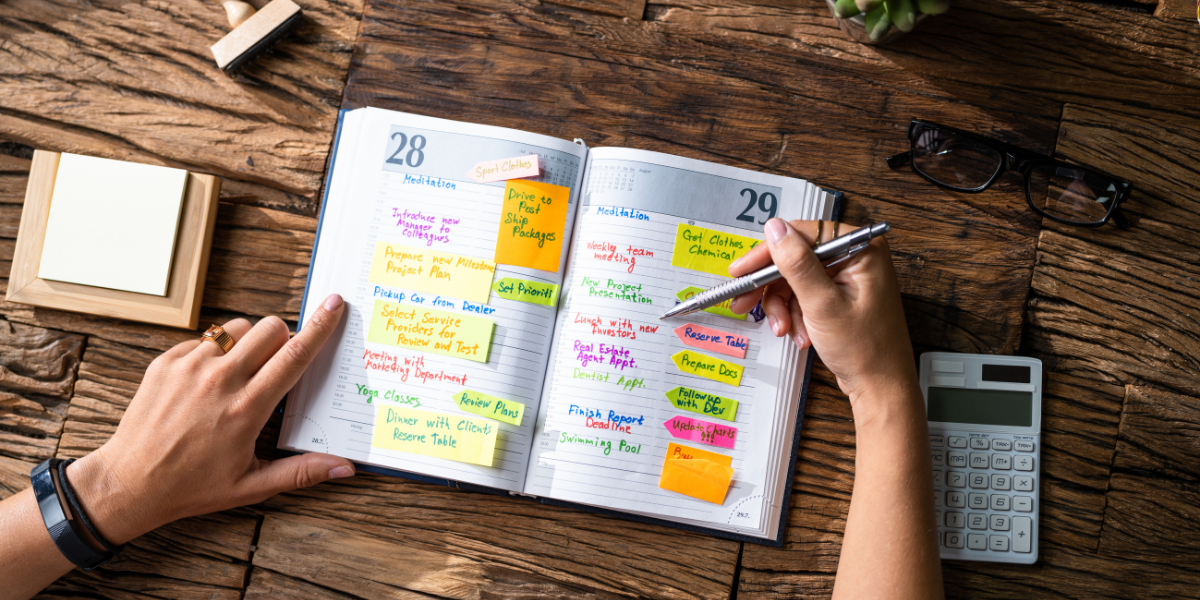 28
Sport Clothes
Meditation
Drive to
Post
Ship
Packages
Introduce new
Manager to
colleagues
Prepare new Milestone
Project Plan
Set Prioriti
Pickup Car from Dealer
Select Service
Providers for
Review and Test
Meeting with
Marketing Department
Yoga Classes
Review Plans
Dinner with Clients
Reserve Table
28.7.
29
Meditation
Get Clothes
Chemical
Weekly team
meeting
New Project
Presentation
Lunch with new
Investors
Reserve Table
Real Estate
Agent Appt.
Prepare Docs
Dentist Appt.
Followup
with Dev
Finish Report
Deadline
Update Charts
Swimming Pool
29.7.
%
MU
7
8
9
4
5
6
1
2
3
0
+